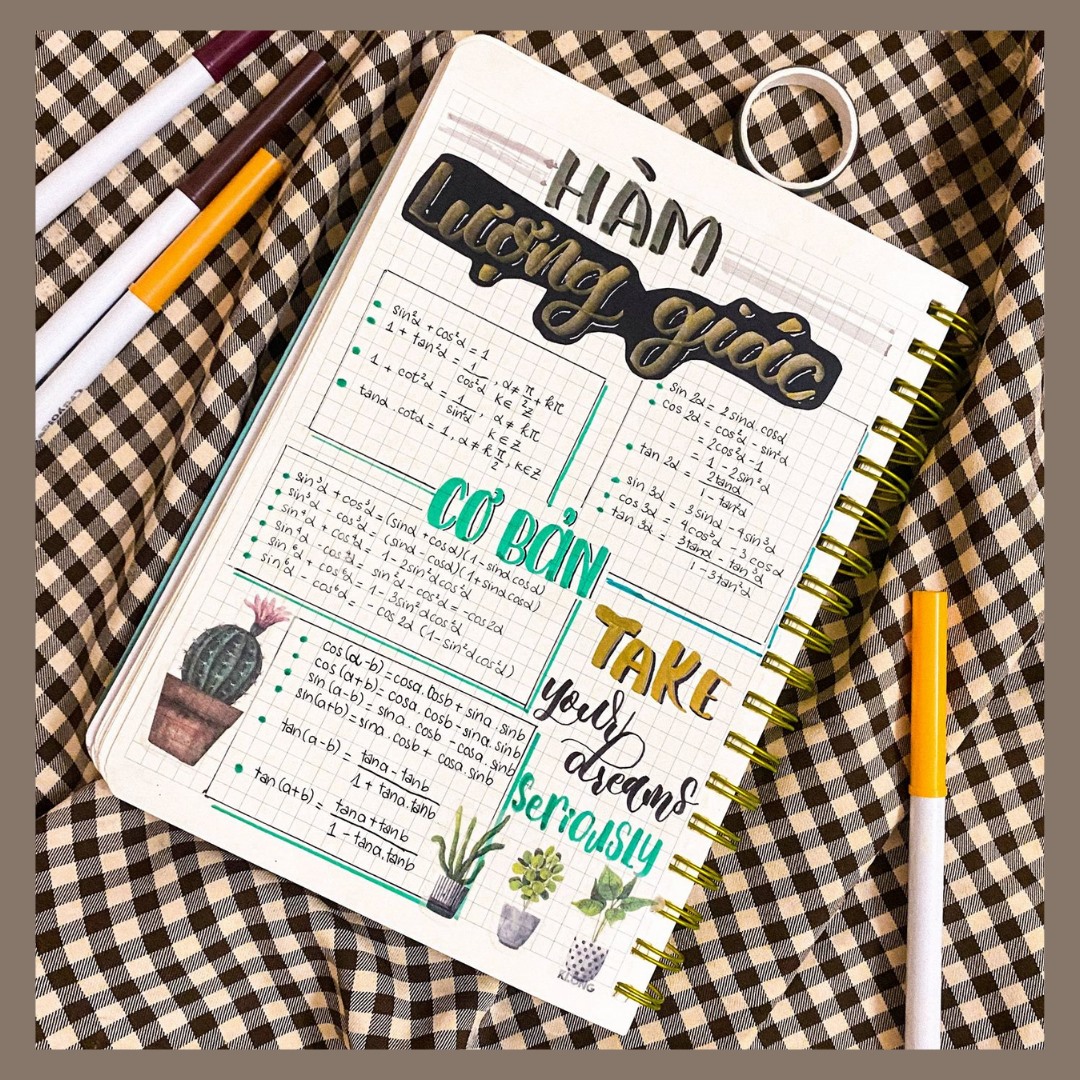 HÀM
Lượng giác
sin²α + cos²α = 1
1 + tan²α = 1/cos²α , α ≠ π/2 + kπ
k ∈ Z
1 + cot²α = 1/sin²α , α ≠ kπ
k ∈ Z
tanα . cotα = 1, α ≠ k π/2, k∈Z
sin 2α = 2 sinα. cosα
cos 2α = cos²α - sin²α
= 2cos²α - 1
= 1 - 2sin²α
tan 2α = 2tanα / 1 - tan²α
sin 3α = 3sinα - 4sin³α
cos 3α = 4cos³α - 3cosα
tan 3α = 3tanα - tan³α / 1 - 3tan²α
CƠ BẢN
sin³α + cos³α = (sinα + cosα)(1 - sinα cosα)
sin³α - cos³α = (sinα - cosα)(1 + sinα cosα)
sin⁴α + cos⁴α = 1 - 2sin²α cos²α
sin⁴α - cos⁴α = sin²α - cos²α = -cos2α
sin⁶α + cos⁶α = 1 - 3sin²α cos²α
sin⁶α - cos⁶α = - cos 2α (1 - sin²α cos²α)
cos(a-b) = cosa. cosb + sina. sinb
cos(a+b) = cosa. cosb - sina. sinb
sin(a-b) = sina. cosb - cosa. sinb
sin(a+b) = sina. cosb + cosa. sinb
tan(a-b) = tana - tanb / 1 + tana.tanb
tan(a+b) = tana + tanb / 1 - tana.tanb
TAKE
your
dreams
seriously